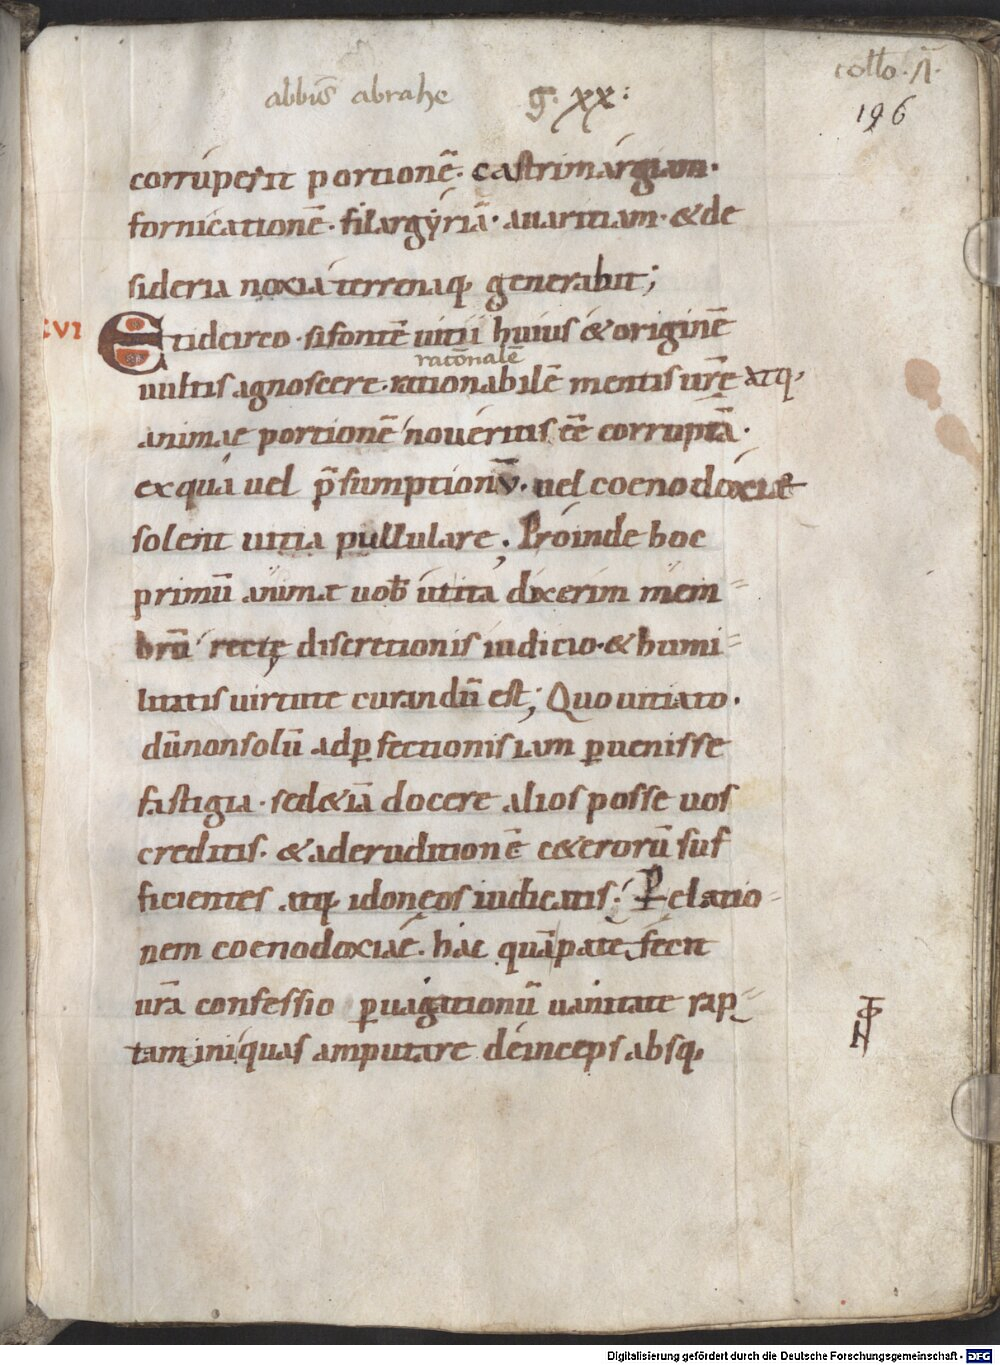 abbis̄ abrahe g. xx:
collo. ā.
196
corruperit portionē. castrimargiam.
fornicationē. filargyriā. auaritiam. &de
sideria noxia terrenaq; generabit;
XVI Etidcirco. sifontē uitii huius & originē
rationalē
uultis agnoscere. rationabilē mentis urē atq;
animae portionē noueritis eē corruptā.
exqua uel p̄sumptionū. uel coenodoxiae
solent uitia pullulare. Proinde hoc
primū animae uob̄ utita dixerim mem-
brū rectę discretionis iudicio. & humi-
litatis uirtute curandū est; Quo uitiato.
dūnonsolū adꝑfectionis iam ꝑuenisse
fastigia. sed&iā docere alios posse uos
creditis. & aderuditionē c&erorū suf
ficientes atq; idoneos iudicatis. Pelatio-
nem coenodoxiae. hac quāpate fecit
urā confessio ꝑuagationū uanitate rap-
tam iniquas amputare deinceps absq;
Digitalisierung gefördert durch die Deutsche Forschungsgemeinschaft - DFG